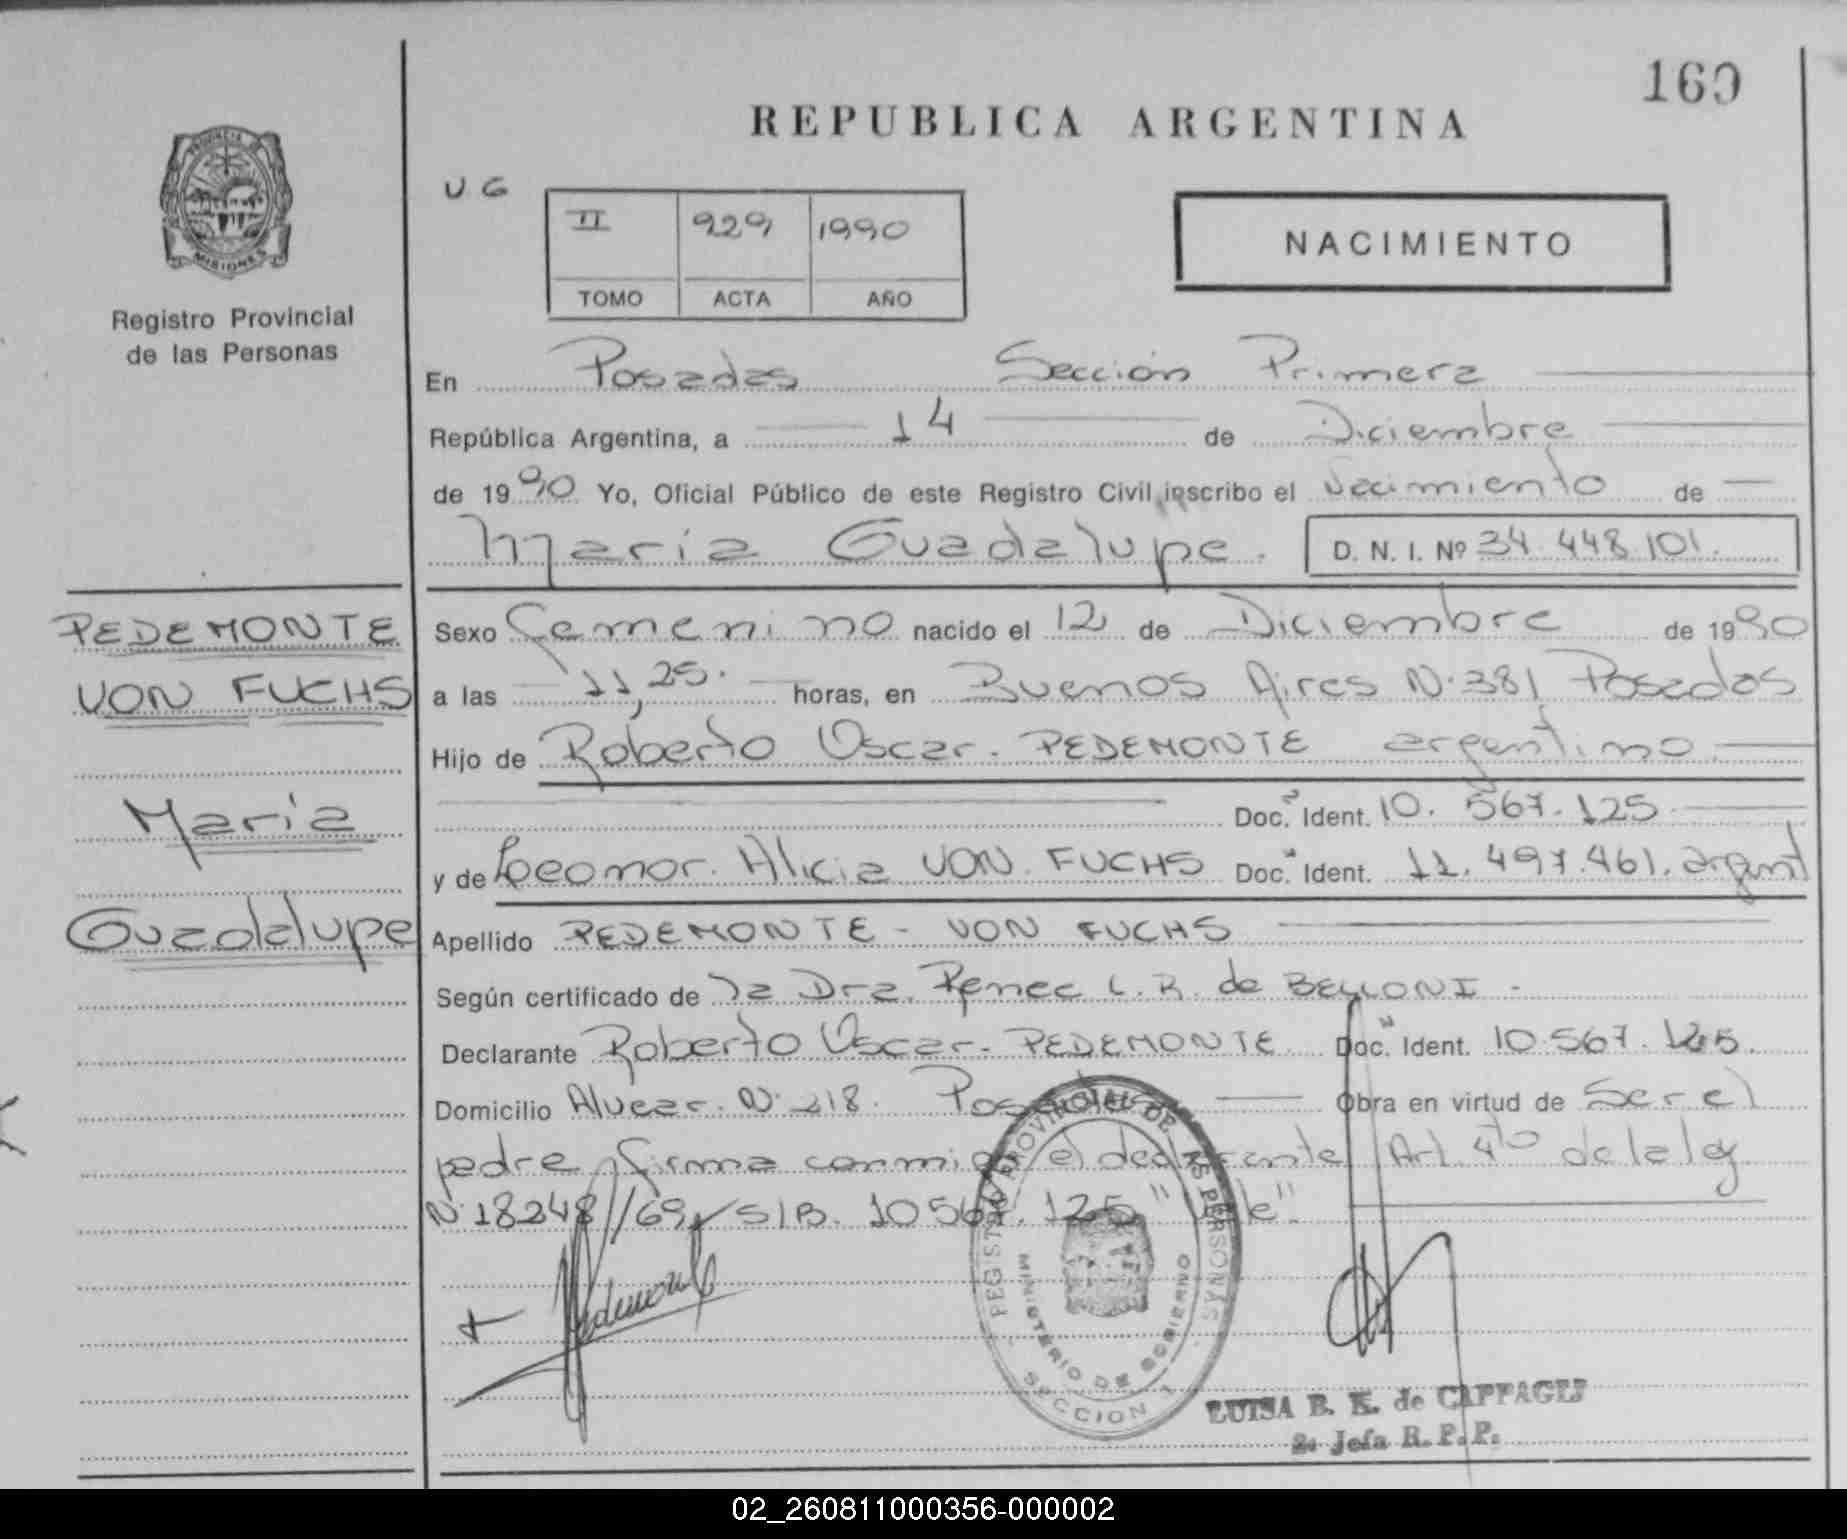 160
REPUBLICA ARGENTINA
PROVINCIA DE
MISIONES
Registro Provincial
de las Personas
U G
II 929 1990
TOMO ACTA AÑO
NACIMIENTO
En Posadas Sección Primera
República Argentina, a 14 de Diciembre
de 1990 Yo, Oficial Público de este Registro Civil, inscribo el Nacimiento de
María Guadalupe. D. N. I. Nº 34.448.101.
PEDEMONTE
VON FUCHS
María
Guadalupe
Sexo Femenino nacido el 12 de Diciembre de 1990
a las 11,25. horas, en Buenos Aires N. 381 Posadas
Hijo de Roberto Oscar. PEDEMONTE argentino
Doc. Ident. 10. 567. 125
y de Leonor. Alicia VON. FUCHS Doc. Ident. 11. 497.461. argent
Apellido PEDEMONTE - VON FUCHS
Según certificado de la Dra. Renee L. R. de BELLONI -
Declarante Roberto Oscar. PEDEMONTE Doc. Ident. 10.567.125.
Domicilio Alvear. N. 218. Posadas Obra en virtud de Ser el
padre firma conmigo el declarante Art. 4to de la ley
N. 18248//69/ S/B. 10567.125 "Vale".
Pedemonte
REGISTRO PROVINCIAL DE LAS PERSONAS
MINISTERIO DE GOBIERNO
SECCION 1
LUISA B. K. de
2ª Jefa R. P. P.
02_260811000356-000002